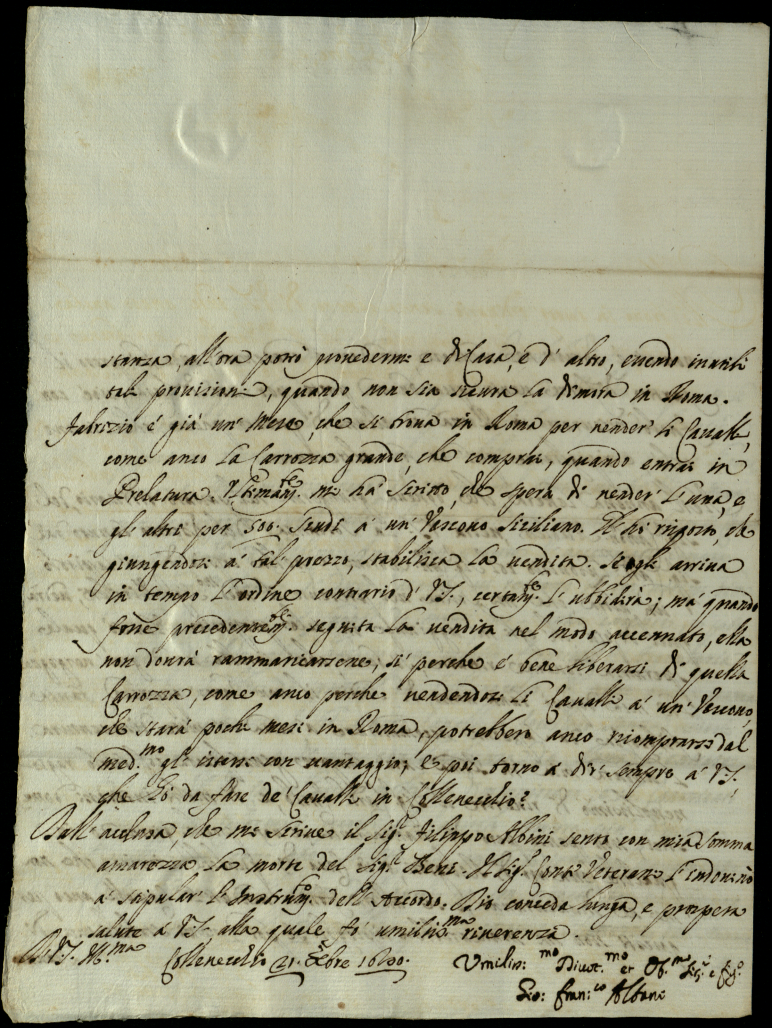 stanza, all'ora potrò provedermi e di Casa, e d'altro, essendo inutili
tali provisioni, quando non sia sicura la dimora in Roma.
Fabrizio é già un' Mese, che si trova in Roma per vender' li Cavalli,
come anco la Carrozza grande, che comprai, quando entrai in
Prelatura. mi hà scritto, che spera di vender' l'una, e
gl'altri per 500. Scudi à un' Vescovo Siciliano. Hò risposto, che
giungendosi à tal' prezzo, stabilisca la vendita. Se gli arriva
in tempo l'ordine contrario d'V.S., certam.te l'ubbidirà; mà quando
fosse precedentem.te seguita la vendita nel modo accennato, ella
non dourà rammaricarsene, sì perche é bene liberarsi di quella
Carrozza, come anco perche vendendosi li Cavalli à un' Vescovo,
che starà pochi mesi in Roma, potrebbero anco ricomprarsi dal
med.mo gl' istessi con vantaggio; e poi torno à dir' sempre à V.S.,
che hò da fare de' Cavalli in Collevecchio?
Dall' acclusa, che mi scrive il Sig.r Filippo Albini sento con mia somma
amarezza, la morte del Sig.r Beni. Il Sig.r Conte Veterani l'indovinò
à stipular' l'Instrum.to dell' Accordo. Dio conceda lunga, e prospera
salute à V.S., alla quale fò umiliss.ma riverenza.
Di V.S. Ill.ma Collevecchio 21. Xbre 1690.
Umiliss.mo Divot.mo et Ob.mo Ser.e e Fig.o
Gio: Fran.co Albani